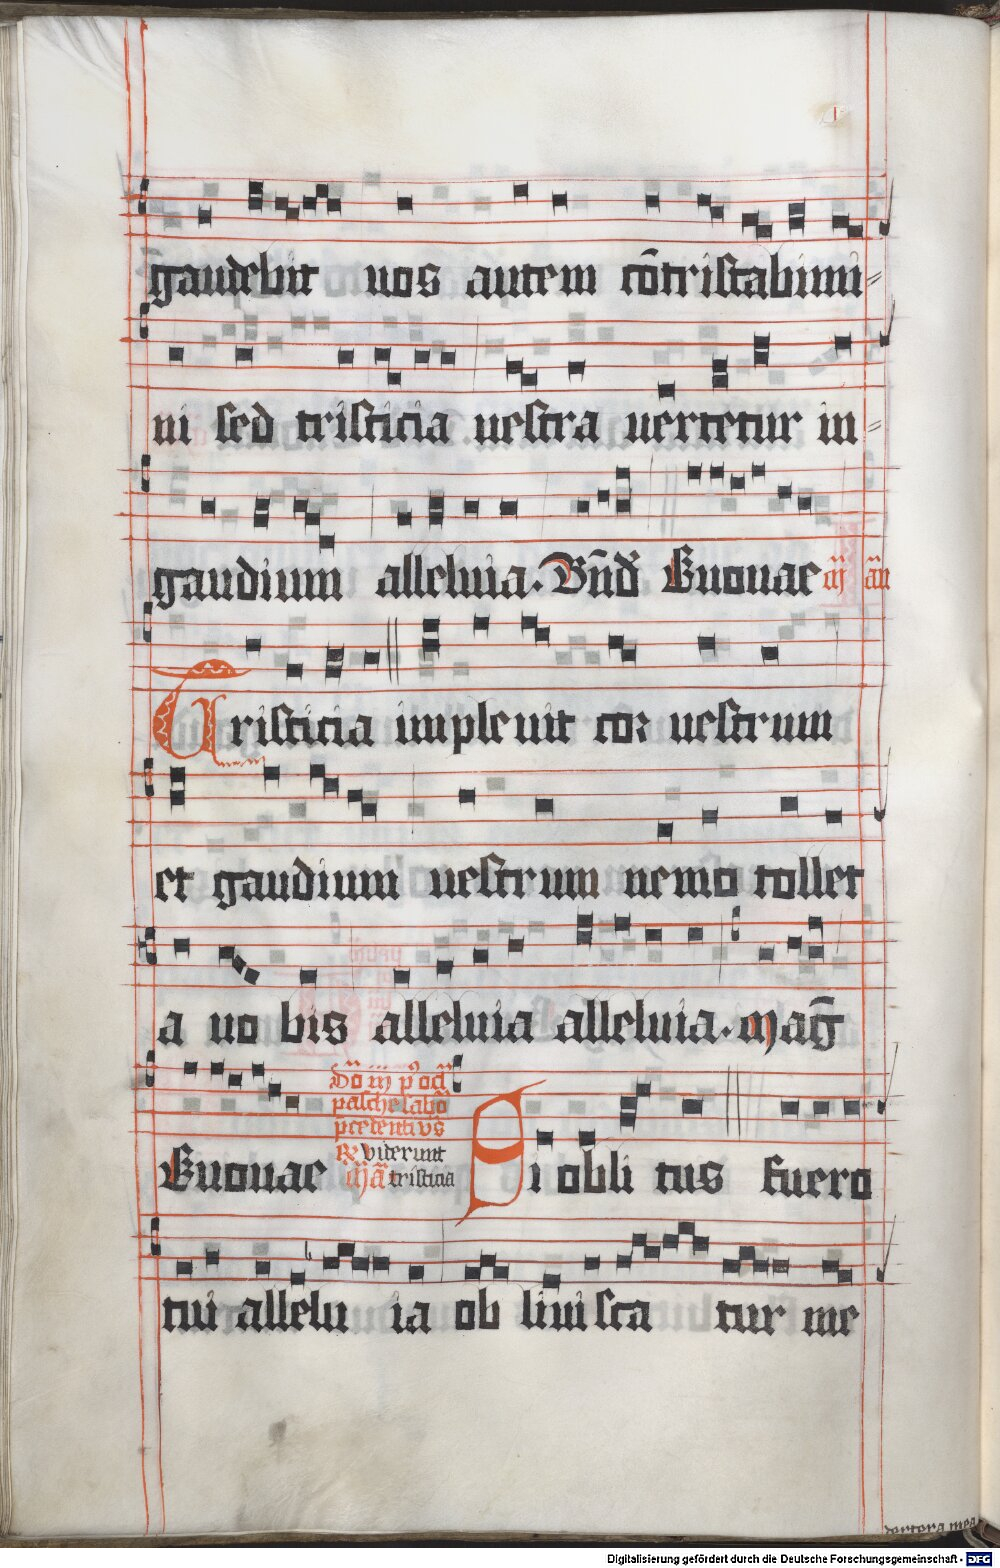 gaudebit uos autem cōtristabimi⸗
ni sed tristicia uestra uertetur in⸗
gaudium alleluia. Bn̄d Euouae
Tristicia impleuit cor uestrum
et gaudium uestrum nemo tollet
a uo bis alleluia alleluia. Mag̅
pasche sabō
precedenti vs̄
Euouae ℟ viderunt
tristicia
Si obli tus fuero
tui allelu ia ob liuisca tur me
dextera mea
Digitalisierung gefördert durch die Deutsche Forschungsgemeinschaft - DFG